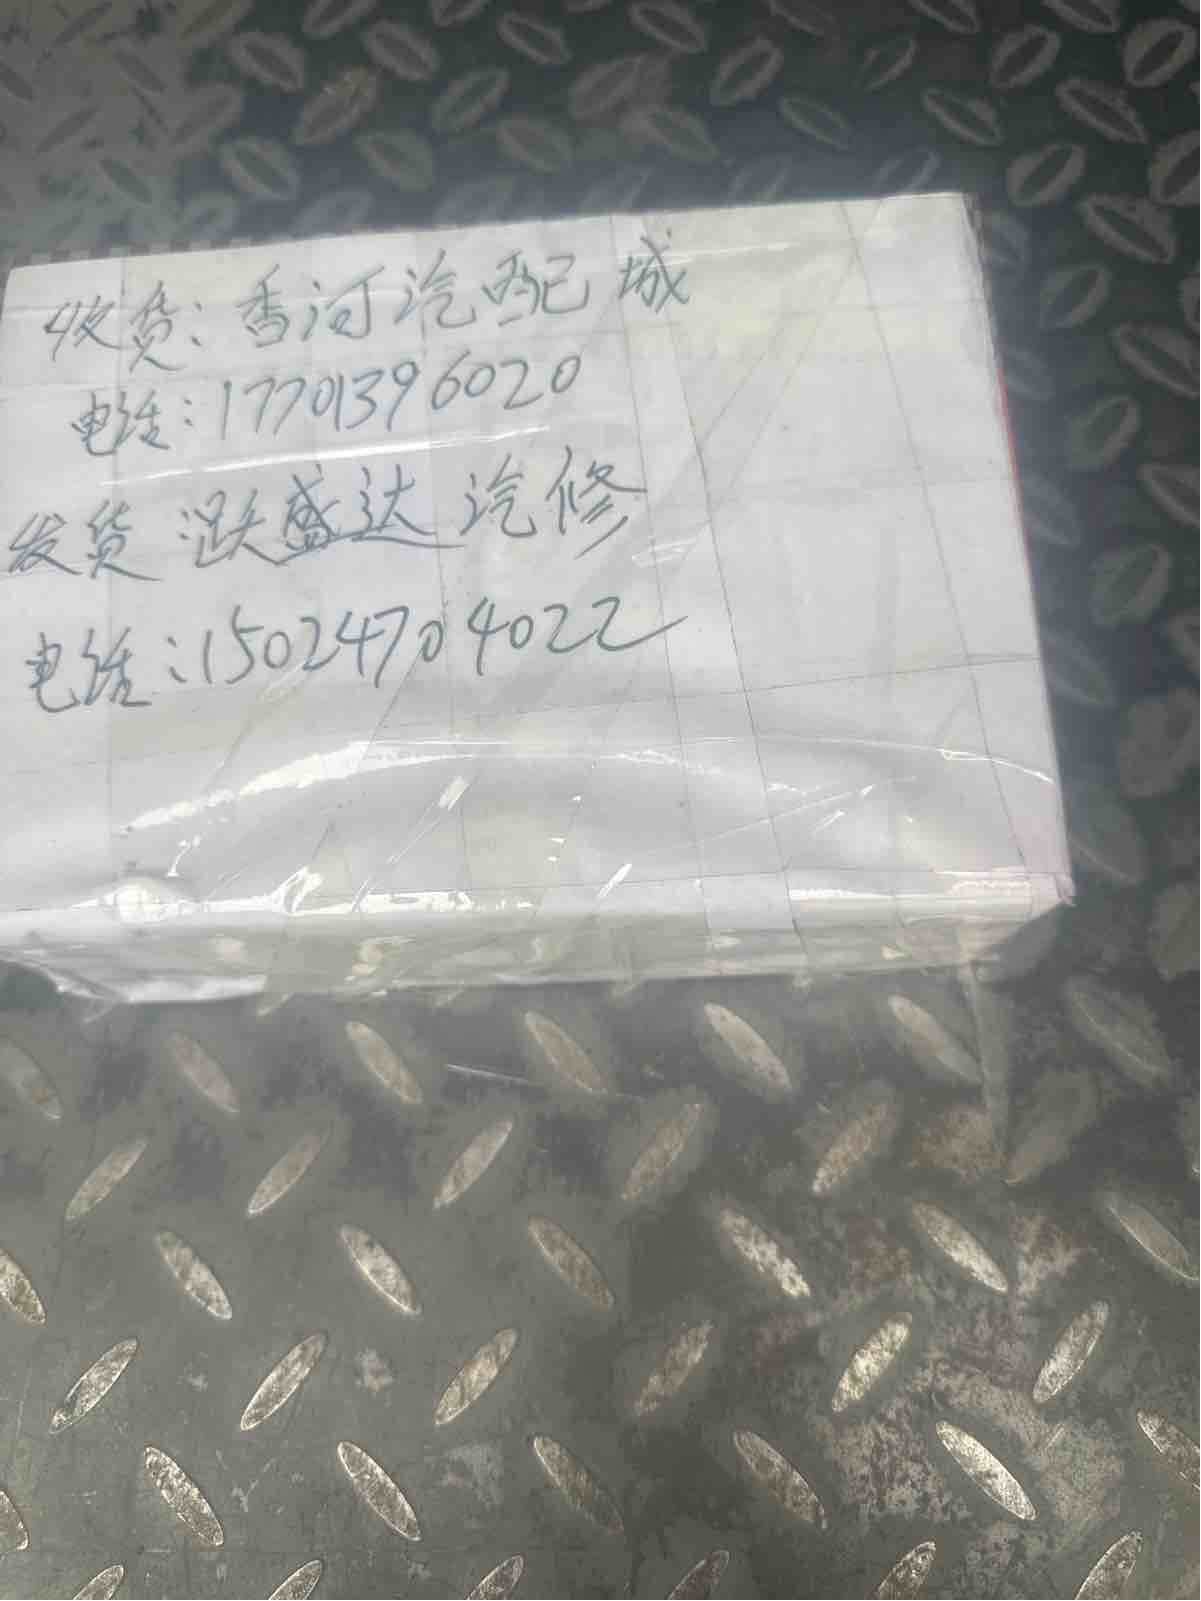 收货：香河汽配城
电话：17701396020
发货 跃盛达汽修
电话：15024704022